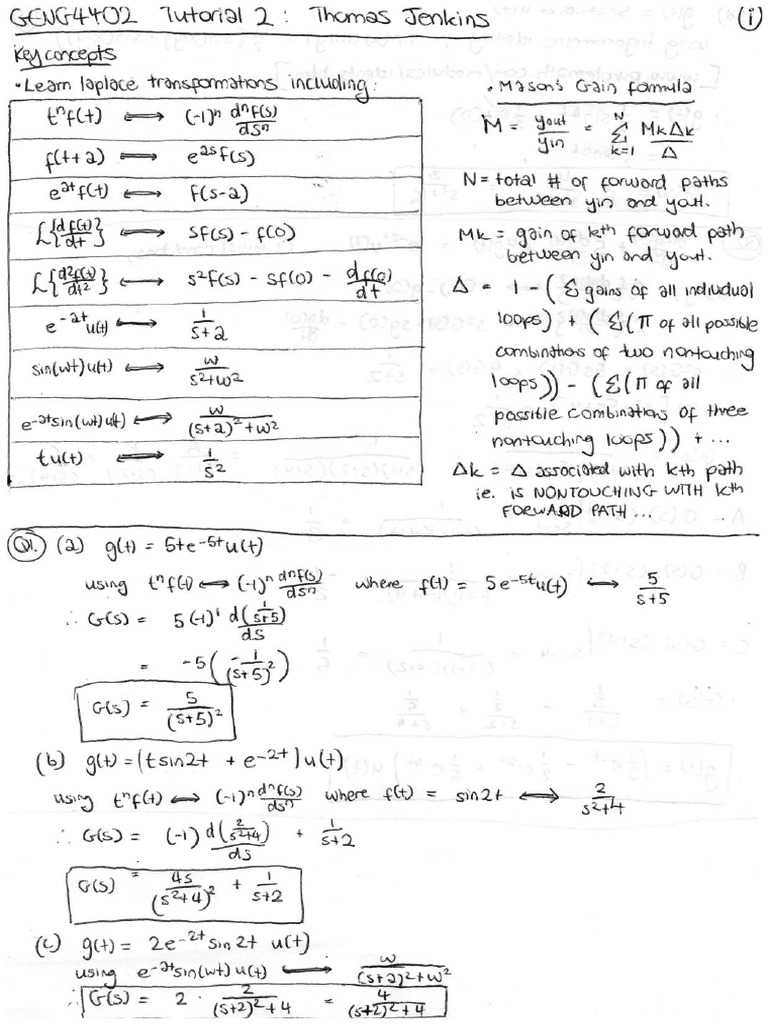 GENG4402 Tutorial 2 : Thomas Jenkins (i)
Key concepts
• Learn laplace transformations including:
tⁿf(t) ⟷ (-1)ⁿ dⁿf(s)/dsⁿ
f(t+a) ⟷ e^{as}f(s)
e^{at}f(t) ⟷ f(s-a)
L{df(t)/dt} ⟷ sf(s) - f(0)
L{d²f(t)/dt²} ⟷ s²f(s) - sf(0) - df(0)/dt
e^{-at}u(t) ⟷ 1/(s+a)
sin(wt)u(t) ⟷ w/(s²+w²)
e^{-at}sin(wt)u(t) ⟷ w/((s+a)²+w²)
tu(t) ⟷ 1/s²
• Mason's Gain formula
M = yout/yin = Σ_{k=1}^{N} MkΔk/Δ
N = total # of forward paths
between yin and yout.
Mk = gain of kth forward path
between yin and yout.
Δ = 1 - (Σ gains of all individual
loops) + (Σ(π of all possible
combinations of two nontouching
loops)) - (Σ(π of all
possible combinations of three
nontouching loops)) + ...
Δk = Δ associated with kth path
ie. is NONTOUCHING WITH kth
FORWARD PATH...
Q1. (a) g(t) = 5te^{-5t}u(t)
using tⁿf(t) ⟷ (-1)ⁿ dⁿf(s)/dsⁿ where f(t) = 5e^{-5t}u(t) ⟷ 5/(s+5)
∴ G(s) = 5(-1)¹ d(1/(s+5))/ds
= -5(-1/(s+5)²)
G(s) = 5/(s+5)²
(b) g(t) = (tsin2t + e^{-2t})u(t)
using tⁿf(t) ⟷ (-1)ⁿ dⁿf(s)/dsⁿ where f(t) = sin2t ⟷ 2/(s²+4)
∴ G(s) = (-1) d(2/(s²+4))/ds + 1/(s+2)
G(s) = 4s/(s²+4)² + 1/(s+2)
(c) g(t) = 2e^{-2t}sin2t u(t)
using e^{-at}sin(wt)u(t) ⟷ w/((s+a)²+w²)
∴ G(s) = 2 · 2/((s+2)²+4) = 4/((s+2)²+4)